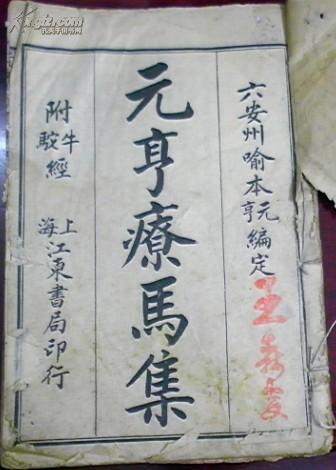 六安州喻本元亨編定
元亨療馬集
附牛駝經
上海江東書局印行
王
kongfz.com
孔夫子旧书网